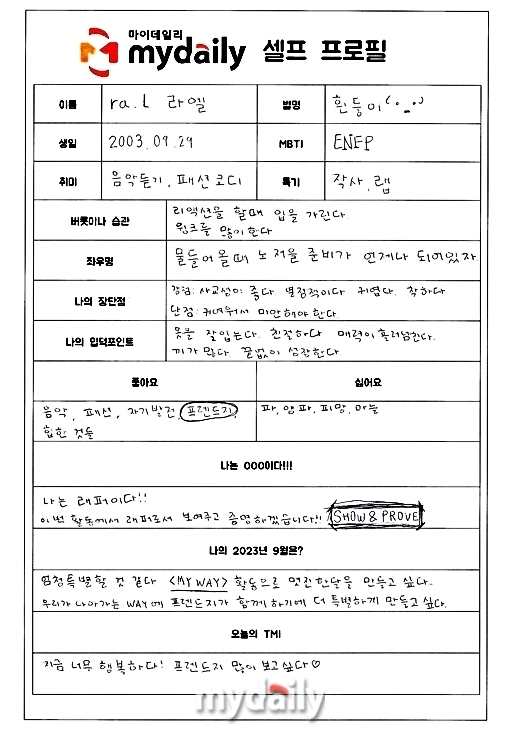 마이데일리
mydaily 셀프 프로필
이름 ra.L 라엘 별명 흰둥이(•_•)
생일 2003.09.29 MBTI ENFP
취미 음악듣기, 패션코디 특기 작사, 랩
버릇이나 습관 리액션을 할때 입을 가린다
윙크를 많이한다
좌우명 물들어올때 노저을 준비가 언제나 되어있자.
나의 장단점 장점: 사교성이 좋다. 열정적이다 귀엽다. 착하다
단점: 귀여워서 미안해야 한다.
나의 입덕포인트 옷을 잘입는다. 친절하다 매력이 흘러넘친다.
끼가 많다. 끝없이 성장한다
좋아요 싫어요
음악, 패션, 자기발전, 프렌드지, 파, 양파, 피망, 마늘
힙한 것들
나는 OOO이다!!!
나는 래퍼이다!!
이번 활동에서 래퍼로서 보여주고 증명하겠습니다!! SHOW & PROVE
나의 2023년 9월은?
엄청특별할 것 같다 <MY WAY> 활동으로 멋진한달을 만들고 싶다.
우리가 나아가는 WAY에 프렌드지가 함께 하기에 더 특별하게 만들고 싶다.
오늘의 TMI
지금 너무 행복하다! 프렌드지 많이 보고싶다♡
mydaily